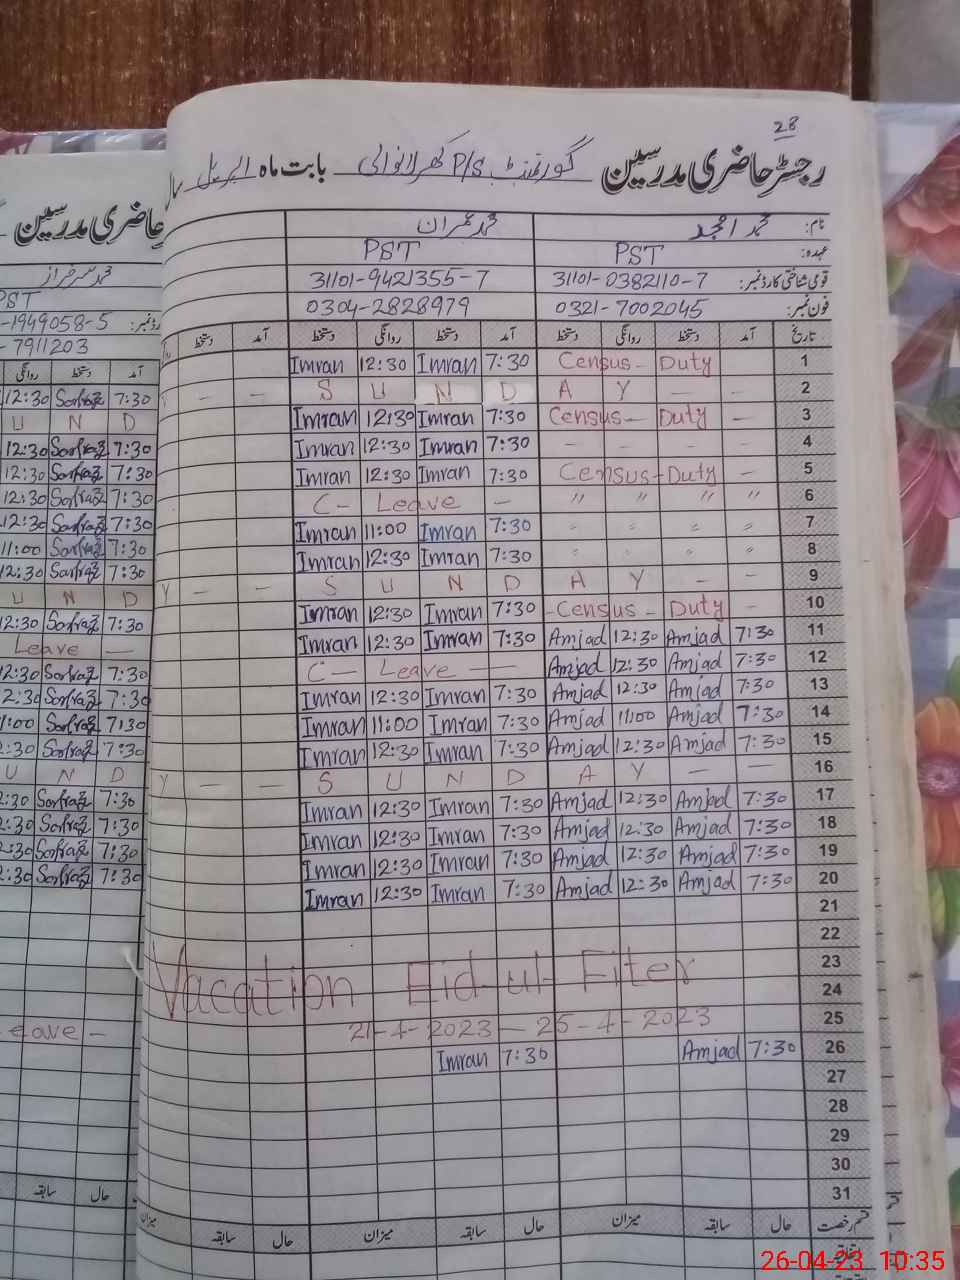 28
رجسٹر حاضری مدرسین گورنمنٹ P/S کھرلانوالی بابت ماہ اپریل
نام: محمد امجد محمد عمران
عہدہ: PST PST
قومی شناختی کارڈ نمبر: 31101-0382110-7 31101-9421355-7
فون نمبر: 0321-7002045 0304-2828979
تاریخ آمد دستخط روانگی دستخط آمد دستخط روانگی دستخط آمد دستخط
Imran 12:30 Imran 7:30 Census - Duty 1
- - S U N D A Y - - 2
Imran 12:30 Imran 7:30 Census - Duty - 3
Imran 12:30 Imran 7:30 - - - - 4
Imran 12:30 Imran 7:30 Census - Duty - 5
C - Leave - " " " " 6
Imran 11:00 Imran 7:30 " " " " 7
Imran 12:30 Imran 7:30 " " " " 8
Y - - S U N D A Y - - 9
Imran 12:30 Imran 7:30 - Census - Duty - 10
Imran 12:30 Imran 7:30 Amjad 12:30 Amjad 7:30 11
C - Leave - Amjad 12:30 Amjad 7:30 12
Imran 12:30 Imran 7:30 Amjad 12:30 Amjad 7:30 13
Imran 11:00 Imran 7:30 Amjad 11:00 Amjad 7:30 14
Imran 12:30 Imran 7:30 Amjad 12:30 Amjad 7:30 15
Y - - S U N D A Y - - 16
Imran 12:30 Imran 7:30 Amjad 12:30 Amjad 7:30 17
Imran 12:30 Imran 7:30 Amjad 12:30 Amjad 7:30 18
Imran 12:30 Imran 7:30 Amjad 12:30 Amjad 7:30 19
Imran 12:30 Imran 7:30 Amjad 12:30 Amjad 7:30 20
21
22
Vacation Eid-ul-Fiter 23
24
21-4-2023 - 25-4-2023 25
Imran 7:30 Amjad 7:30 26
27
28
29
30
31
قسم رخصت حال سابقہ میزان حال سابقہ میزان حال سابقہ میزان
حاضری مدرسین
محمد سرفراز
PST
-1949058-5
-7911203
آمد دستخط روانگی
12:30 Sarfraz 7:30
U N D
12:30 Sarfraz 7:30
12:30 Sarfraz 7:30
12:30 Sarfraz 7:30
12:30 Sarfraz 7:30
11:00 Sarfraz 7:30
12:30 Sarfraz 7:30
U N D
12:30 Sarfraz 7:30
Leave -
12:30 Sarfraz 7:30
2:30 Sarfraz 7:30
1:00 Sarfraz 7:30
2:30 Sarfraz 7:30
U N D
2:30 Sarfraz 7:30
2:30 Sarfraz 7:30
2:30 Sarfraz 7:30
2:30 Sarfraz 7:30
eave -
حال سابقہ
26-04-23 10:35